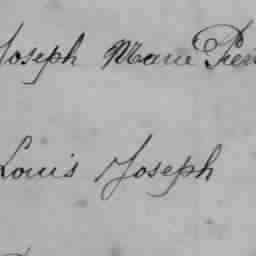 Joseph Marie
Louis Joseph